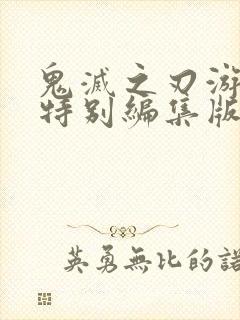 鬼滅之刃游
特別編集版
英勇無比的諾